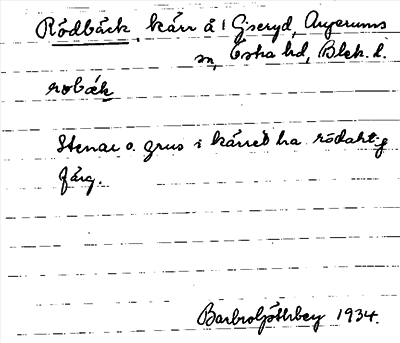 Rödbäck, kärr å 1 Gseryd, Augerums
sn, Östra hd, Blek. l.
robäk
Stenar o. grus i kärret ha rödaktig
färg.
Barbro 1934.